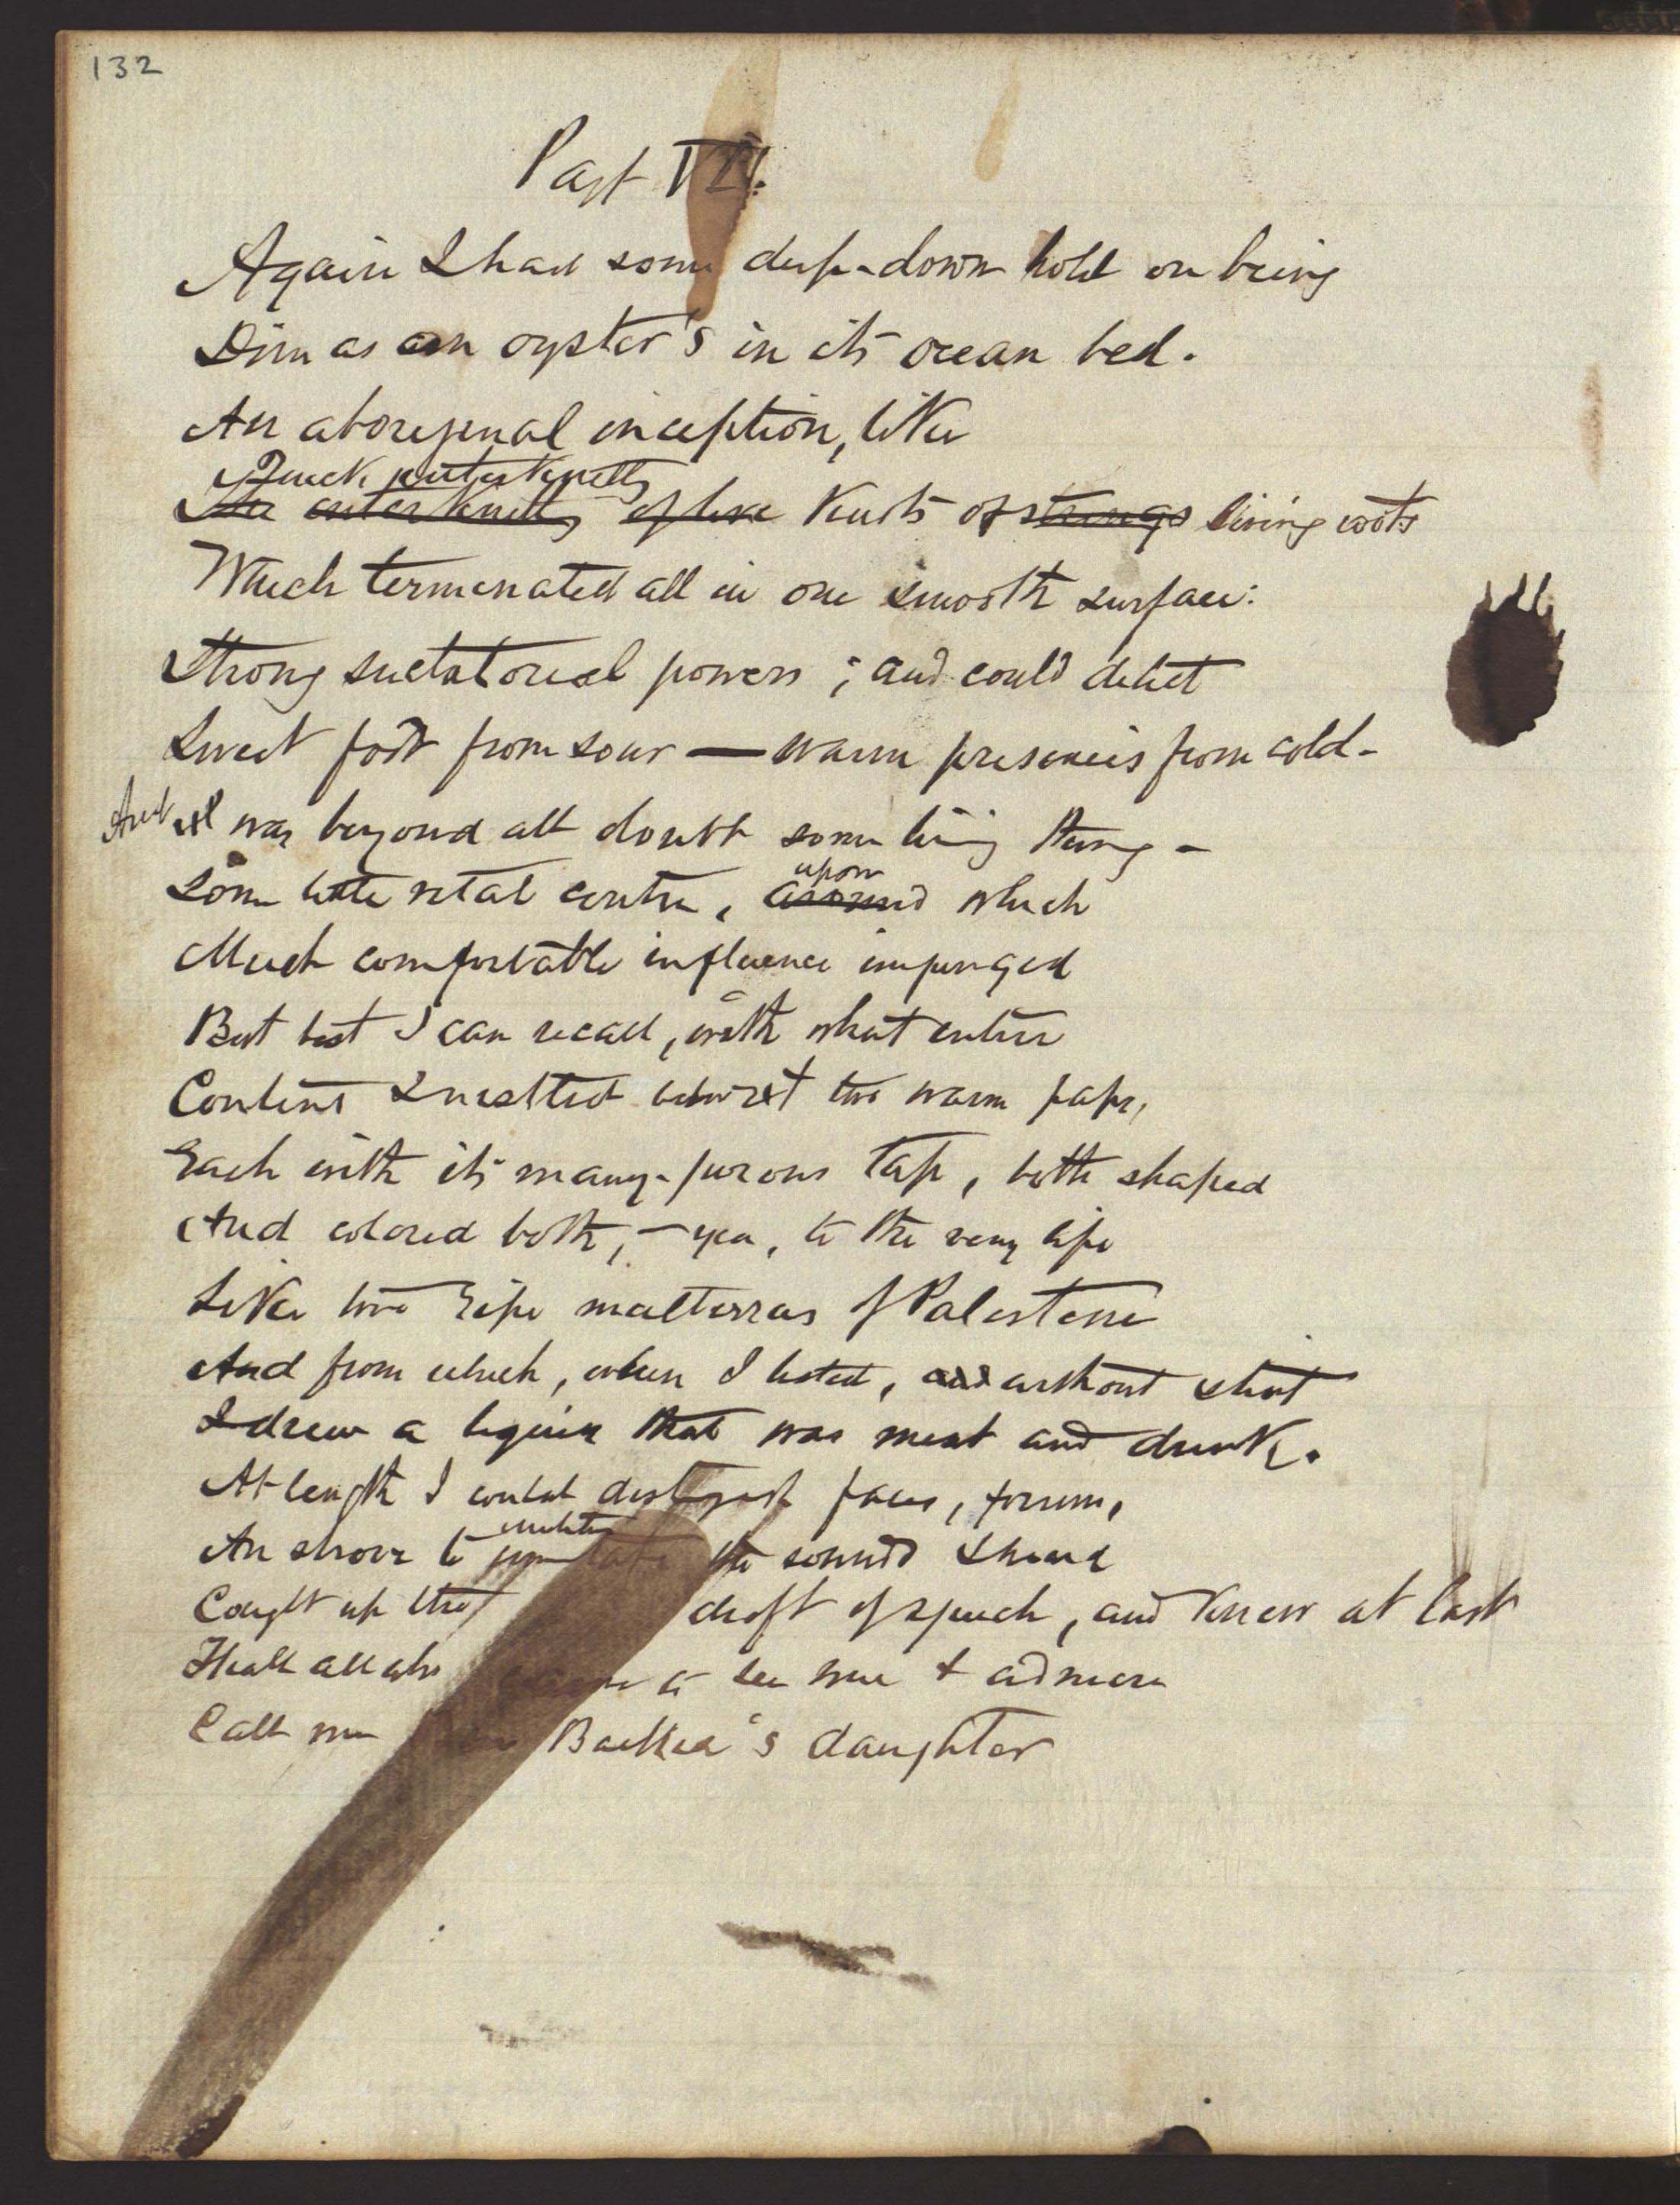 132
Part VII.
Again I had some deep-down hold on being
Dim as an oyster's in its ocean bed.
An aboregenal inception, like
Quick interknitt
The interknitt of live knits of strings living roots
Which terminated all in one smooth surface:
Strong suctatoreal powers; and could detect
Sweet food from sour — warm presences from cold -
And it was beyond all doubt some living thing -
upon
Some little vital centre, around which
Much comfortable influence impinged
But best I can recall, with what entire
Content I nestled betwixt two warm paps,
Each with its many-porous tap, both shaped
And colored both, - yea, to the very life
Like two ripe of Palestene
And from which, when I listed, and without stint
I drew a liquir that was meat and drink.
At length I could distinguish faces, forms,
An strove to imitate the sounds I heard
Caught up the drift of speech, and knew at last
That all who came to see me & admire
Call me Backea's daughter